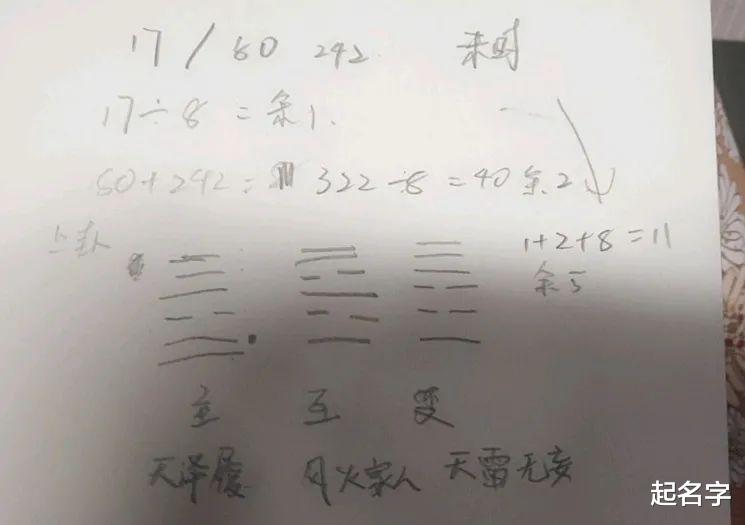 17 / 80 242 未时
17÷8=余1.
80+242= 322÷8=40余2
上卦
1+2+8=11
余5
主 互 变
天泽履 风火家人 天雷无妄
起名字